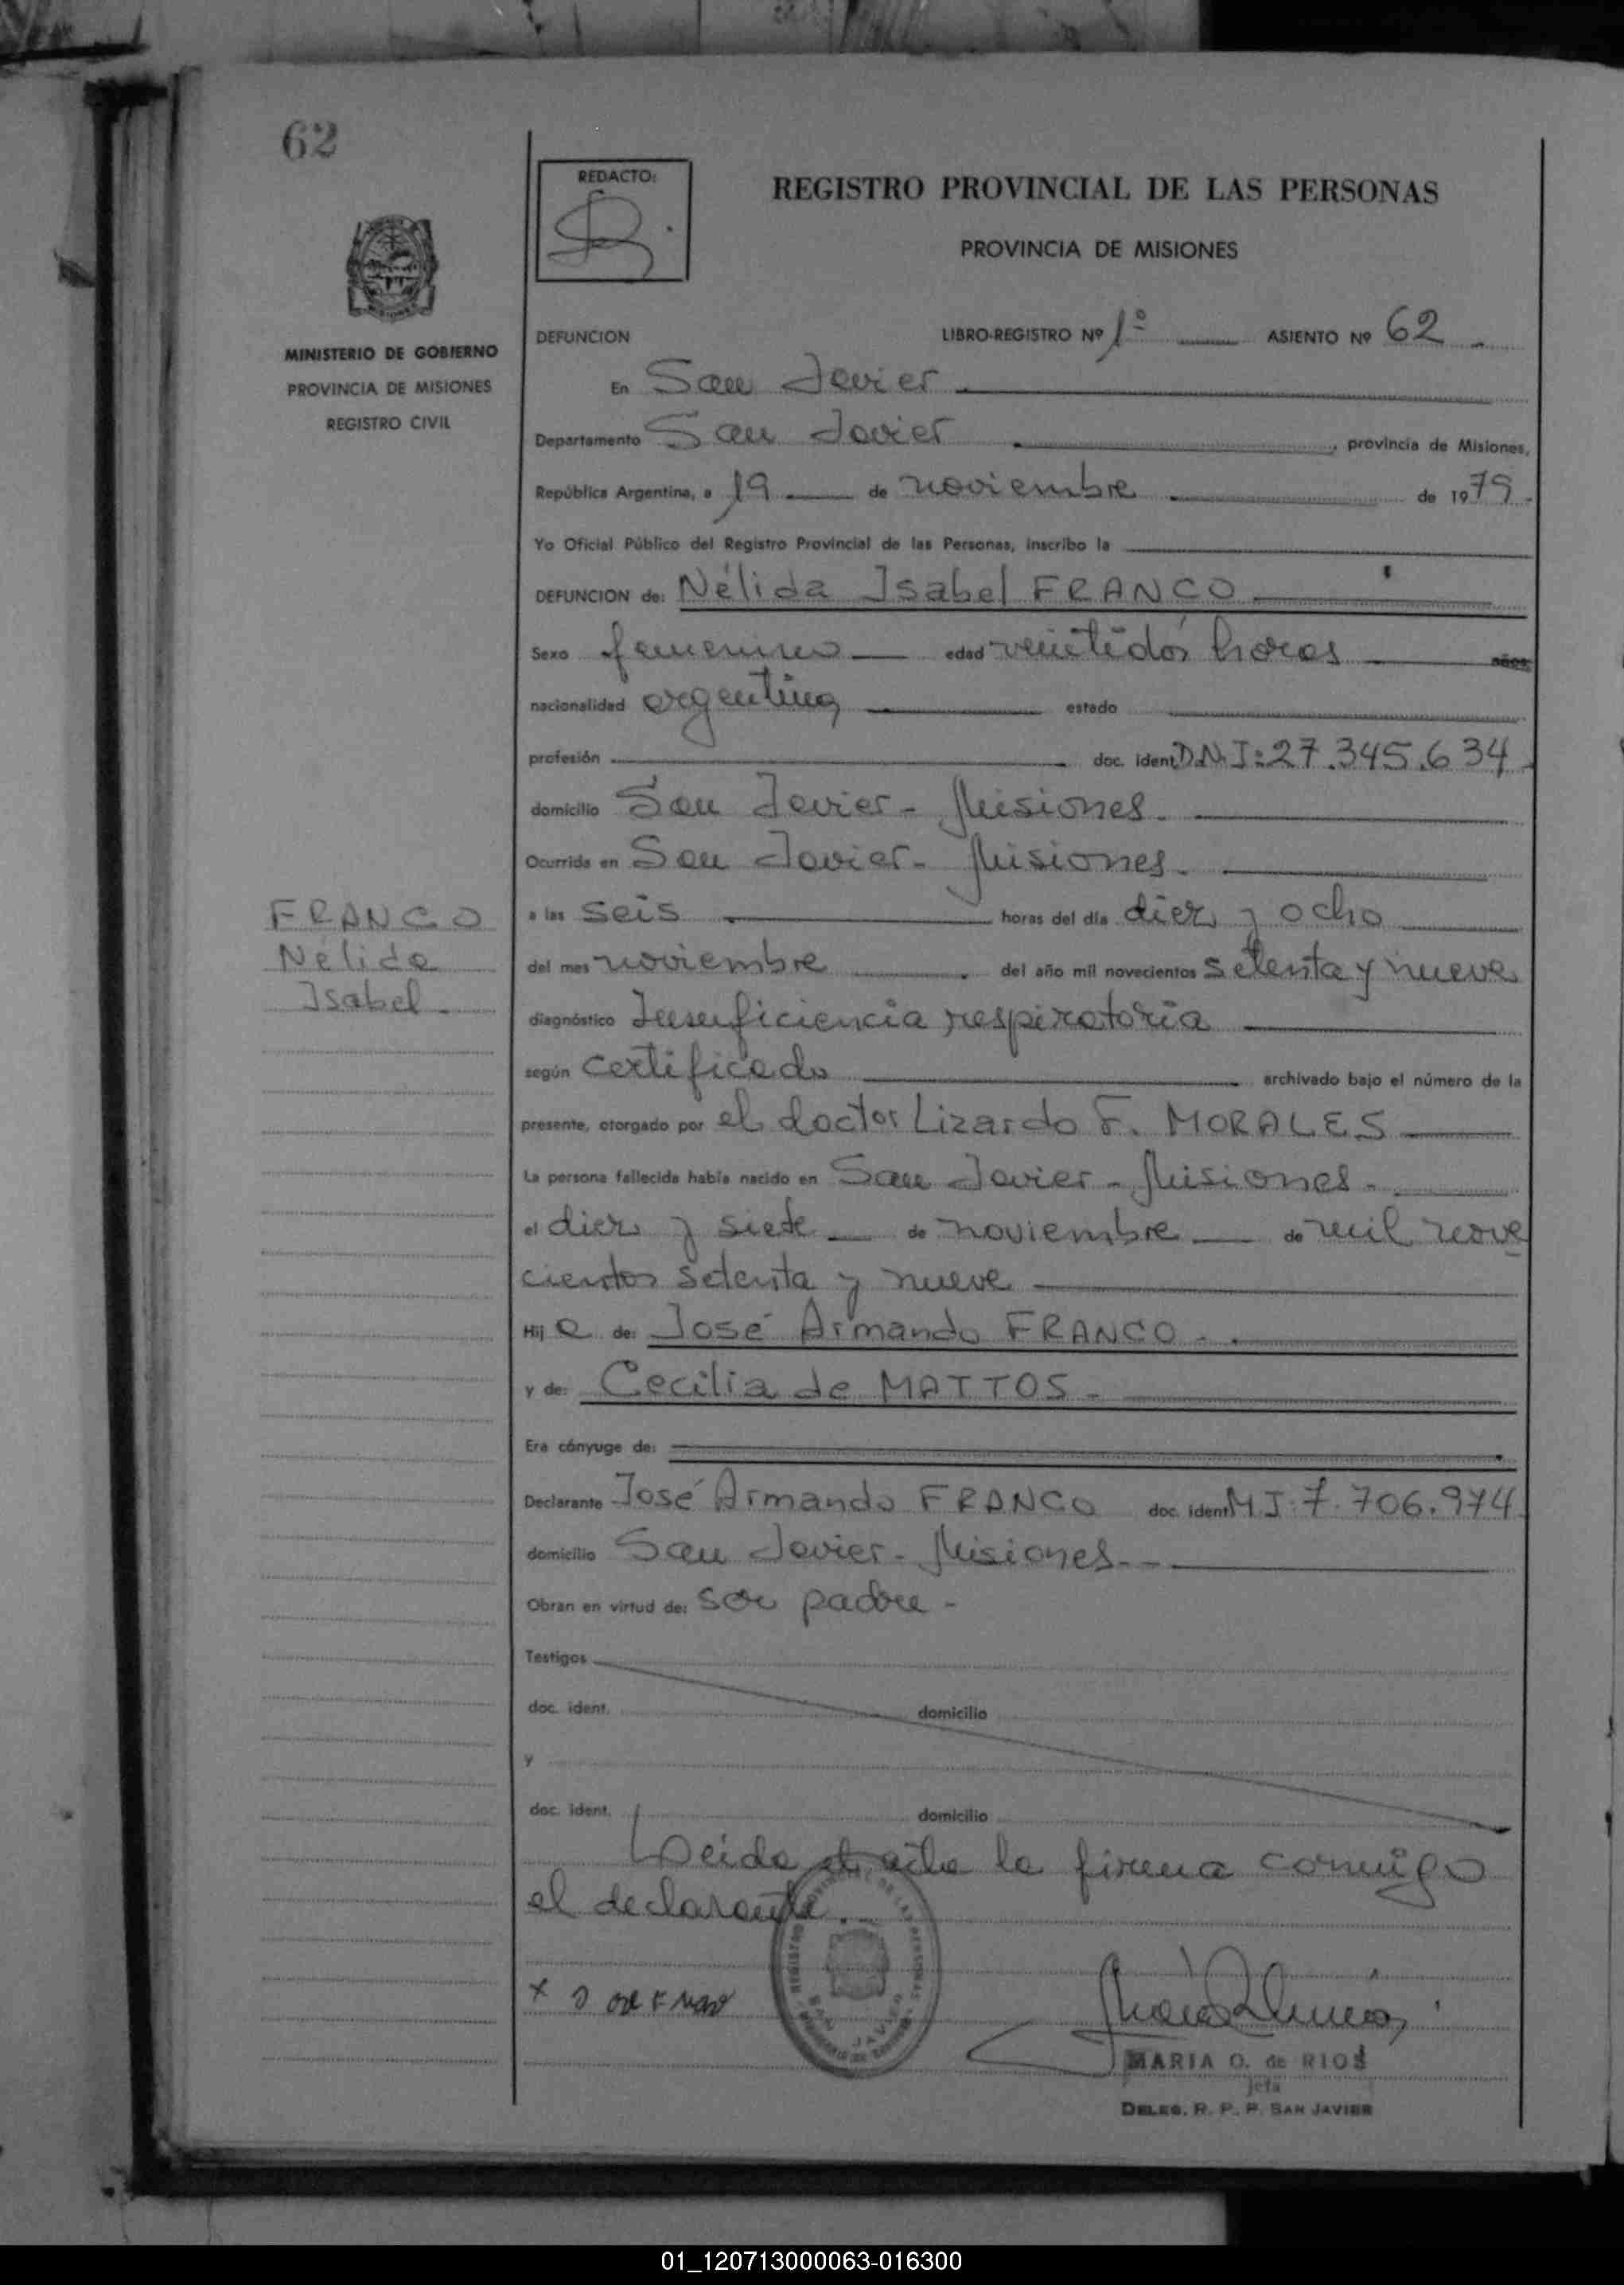 62
REDACTO:
REGISTRO PROVINCIAL DE LAS PERSONAS
PROVINCIA DE MISIONES
MINISTERIO DE GOBIERNO
PROVINCIA DE MISIONES
REGISTRO CIVIL
DEFUNCION LIBRO-REGISTRO Nº 1º ASIENTO Nº 62.
En San Javier
Departamento San Javier, provincia de Misiones,
República Argentina, a 19 de noviembre de 1979.
Yo Oficial Público del Registro Provincial de las Personas, inscribo la
DEFUNCION de: Nélida Isabel FRANCO
Sexo femenino edad veintidós horas años,
nacionalidad argentina estado
profesión doc. ident. D.N.I: 27.345.634
domicilio San Javier - Misiones.
Ocurrida en San Javier - Misiones.
a las seis horas del día diez y ocho
del mes noviembre del año mil novecientos setenta y nueve
diagnóstico Insuficiencia respiratoria
según certificado archivado bajo el número de la
presente, otorgado por el doctor Lizardo F. MORALES
La persona fallecida había nacido en San Javier - Misiones.
el diez y siete de noviembre de mil nove
cientos setenta y nueve
Hija de: José Armando FRANCO.
y de: Cecilia de MATTOS.
Era cónyuge de:
Declarante José Armando FRANCO doc. ident. M.I: 7.706.974
domicilio San Javier - Misiones.
Obran en virtud de: ser padre -
Testigos
doc. ident. domicilio
y
doc. ident. domicilio
Leída el acta la firma conmigo
el declarante.
FRANCO
Nélida
Isabel.
MARIA O. de RIOS
Jefa
DELEG. R. P. P. SAN JAVIER
01_120713000063-016300